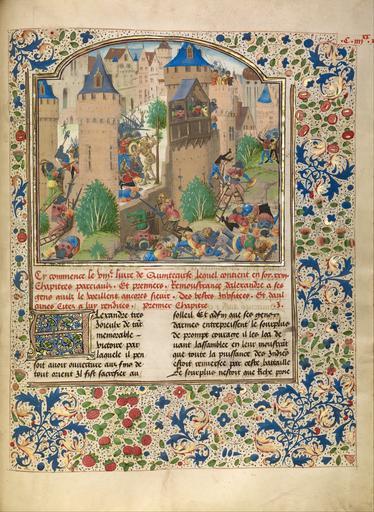 Cy commence le viiij.e livre de Quinte curse lequel contient en soy. xxvj
Chapitres parciaulx. Et premiers. Remonstrance dalexandre a ses
gens mist le veullent ancores sievir. Des bestes Et daul
cunes Citez a luy rendues. Premier Chapitre
Alexandre tres
Joieulx de tant
memorable
victoire par
laquele il pen
soit avoir ouverture aux fins de
tout orient Il fist sacrefice au
soleil Et adfin que ses gens
darmes entrepreissent le sourplus
de prompt couraige il les loa de
vant lassamblee en leur monstrant
que toute la puissance des Indois
estoit renversee par ceste bataille
Le sourplus nestoit que riche proie